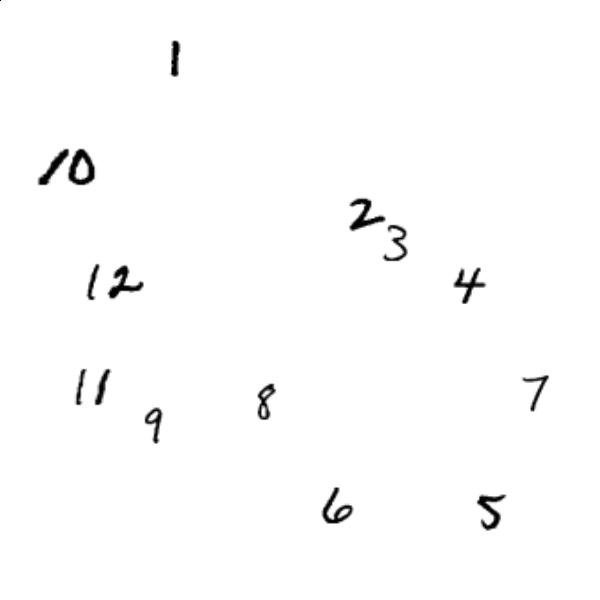 1
10
2
3
12
4
11
7
8
9
6
5